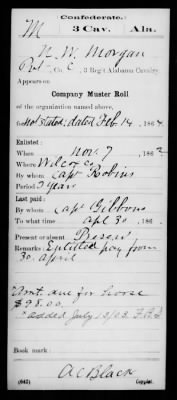 Confederate.
M 3 Cav. Ala.
N. W. Morgan
Pvt, Co. 3 Reg't Alabama Cavalry.
Appears on
Company Muster Roll
of the organization named above,
for Not stated; dated Feb. 14, 1864
Enlisted:
When Nov. 7, 186
Where Wilcox Co
By whom Capt Robins
Period 3 Years
Last paid:
By whom Capt Gibbons
To what time Apl 30, 186
Present or absent Present
Remarks: Entitled pay from
30. April
Amt due for horse
$98.00.
added July 13/08
Book mark:
A C Black
(642) Copyist.